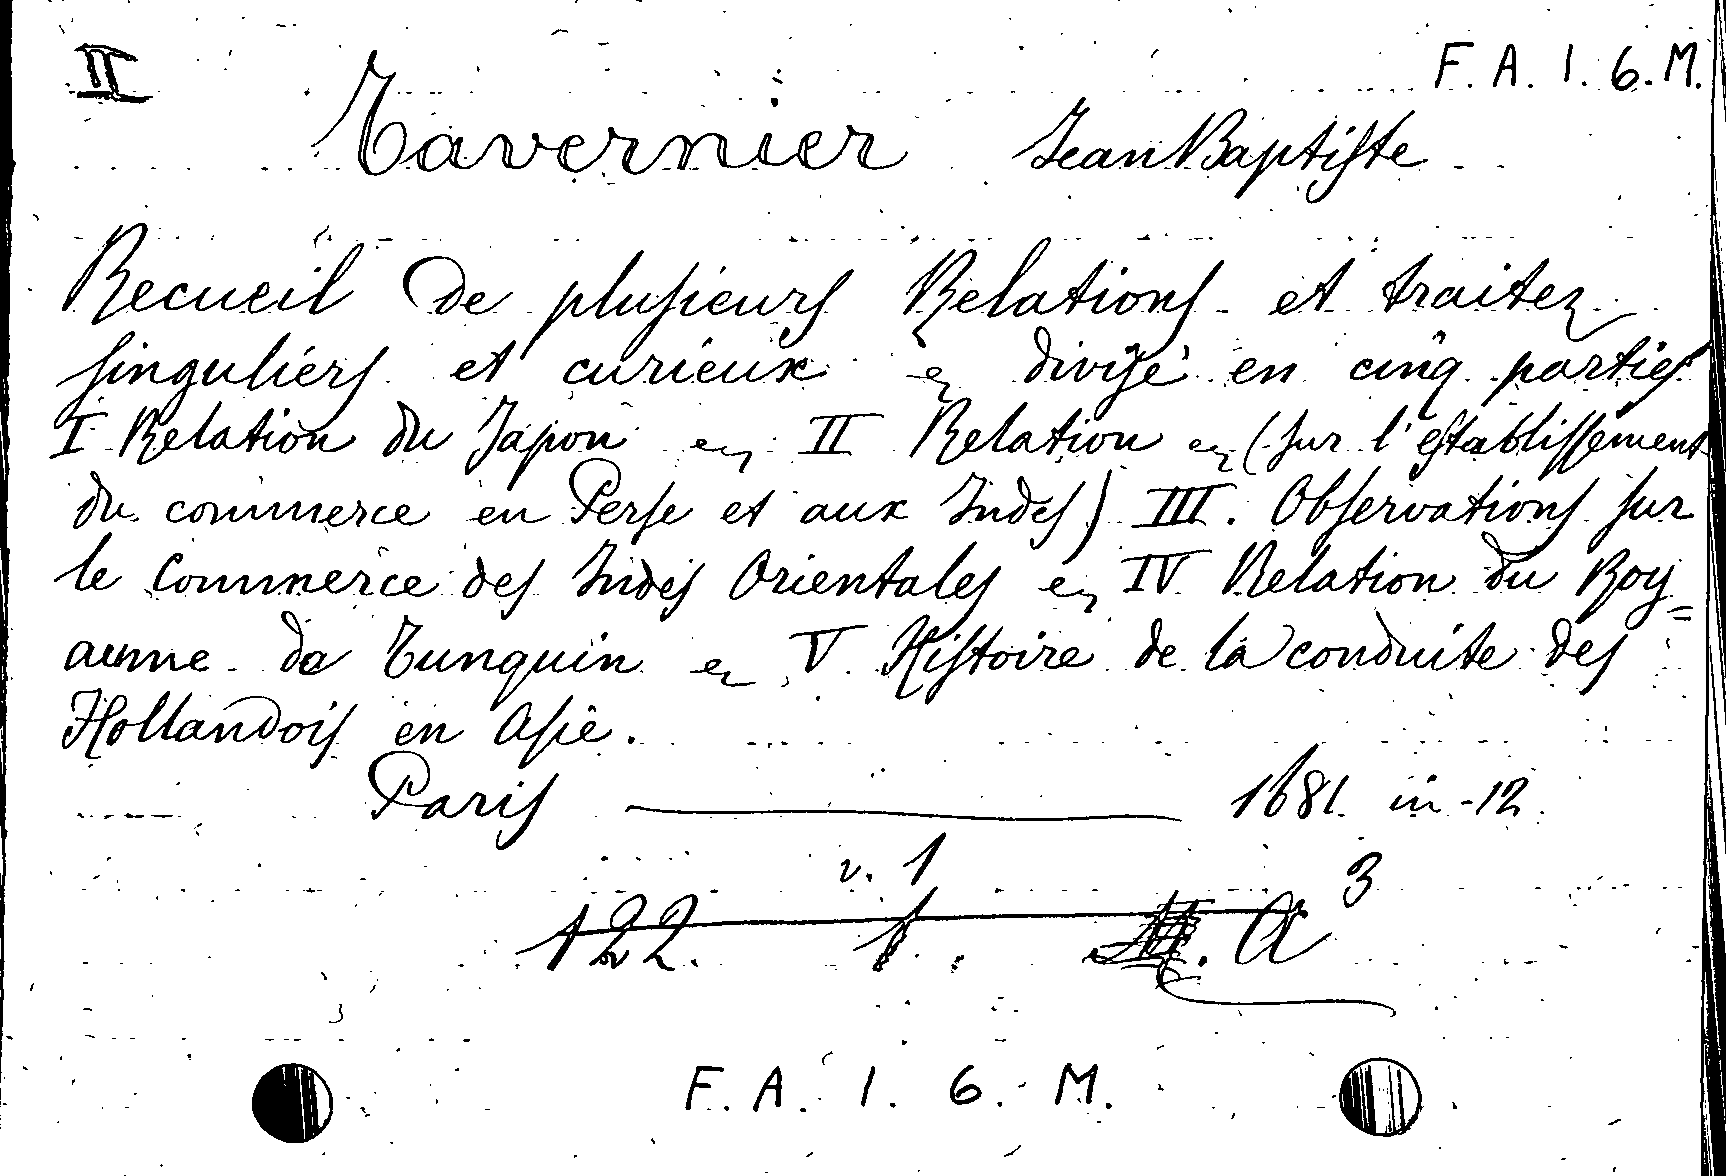 II F. A. 1. 6. M.
Tavernier Jean Baptiste
Recueil de plusieurs Relations et traitez
singuliers et curieux &c divisé en cinq parties
I Relation du Japon &c, II Relation &c (sur l'establissement
du commerce en Perse et aux Indes) III. Observations sur
le Commerce des Indes Orientales &c, IV Relation du Roy=
aume de Tunquin &c V. Histoire de la conduite des
Hollandois en Asie.
Paris 1681. in-12.
v. 1
122. f. A 3
F. A. 1. 6. M.